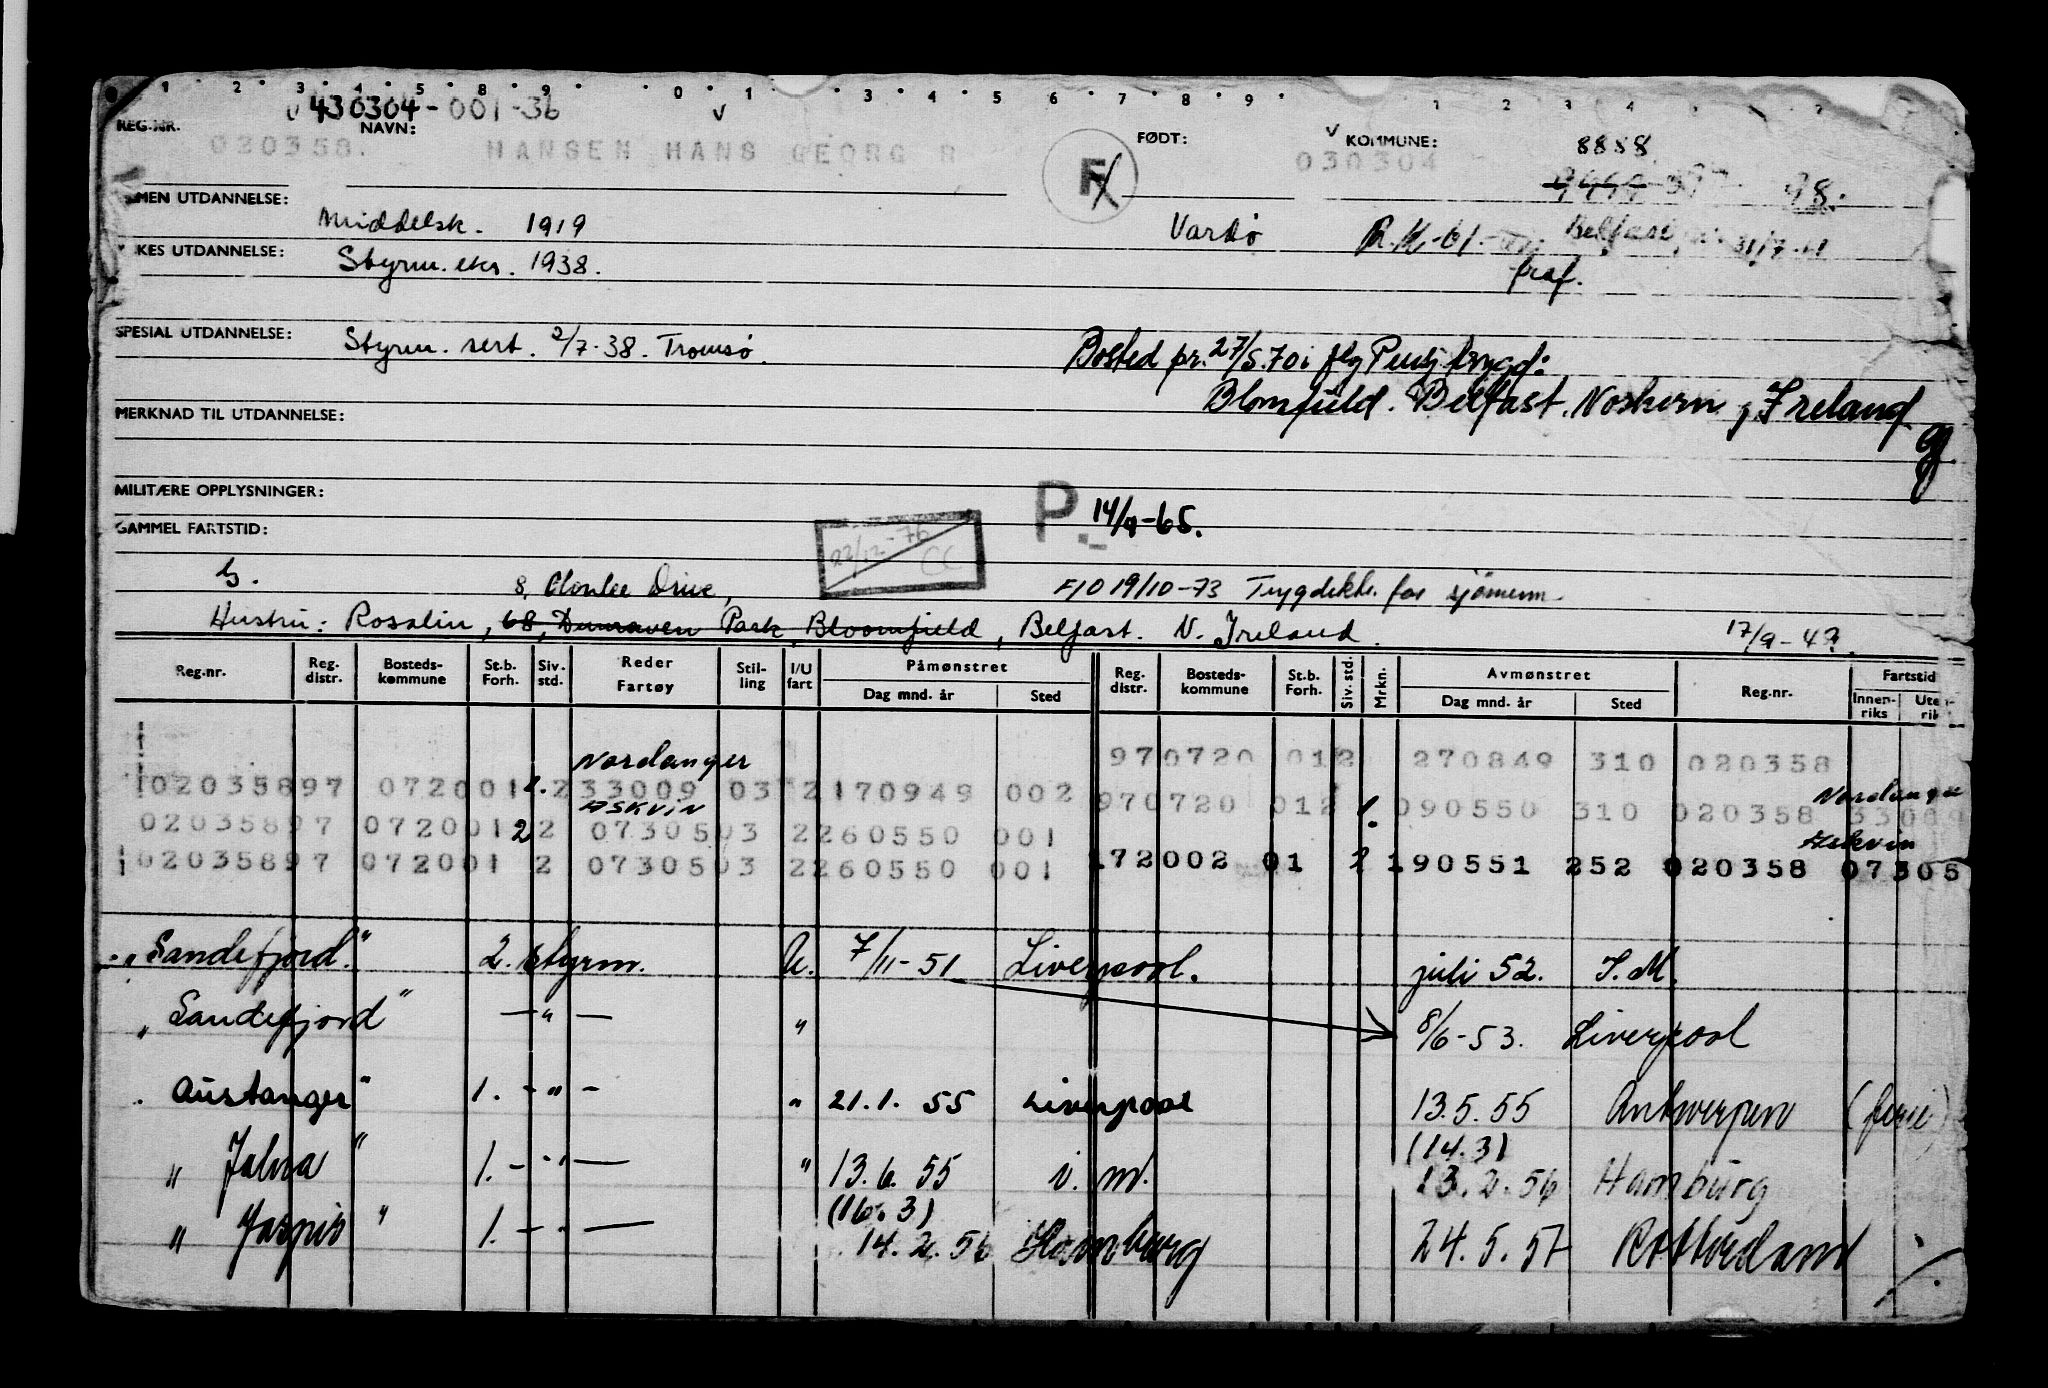 1 2 3 4 5 8 9 0 1 3 4 5 6 7 8 9 1 2 3 4
430304-001-36
REG.NR. NAVN: FØDT: KOMMUNE: 8888
020358. HANSEN HANS GEORG R F 030304 98.
ALMEN UTDANNELSE: Middelsk. 1919 Vardø R.K.-61. Belfast 31/7-61
YRKES UTDANNELSE: Styrm. eks. 1938. fraf.
SPESIAL UTDANNELSE: Styrm. sert. 2/7-38. Tromsø.
Bosted pr. 27/5.70 i flg Pensj.trygd:
MERKNAD TIL UTDANNELSE: Blomfield. Belfast. Northern, Ireland
MILITÆRE OPPLYSNINGER:
P. 14/9-65.
GAMMEL FARTSTID: 22/12-76 CC
G. 8, Clonlee Drive, FJO 19/10-73 Trygdekt. for sjömenn
Hustru: Rosalin, 68, Dunraven Park, Bloomfield, Belfast. N. Ireland. 17/9-43.
Reg.nr. Reg. distr. Bosteds-kommune St.b. Forh. Siv. std. Reder Fartøy Stil-ling I/U fart Påmønstret Dag mnd. år Sted Reg. distr. Bosteds-kommune St.b. Forh. Siv. std. Mrkn. Avmønstret Dag mnd. år Sted Reg.nr. Fartstid Innen-riks Uten-rik
970720 012 270849 310 020358
Nordanger Nordanger
02035897 072001 2. 2 33009 03 2170949 002 970720 012 1. 090550 310 020358 33009
Askvin Askvin
02035897 072001 2 2 073050 3 2260550 001
02035897 072001 2 073050 3 2260550 001 172002 01 2 190551 252 020358 07305
"Sandefjord." 2. styrm. U. 7/11-51 Liverpool. juli 52. I.M.
"Sandefjord" — " — " 8/6-53. Liverpool
Austanger" 1. - " - " 21.1.55 Liverpool 13.5.55 Antwerpen (ferie)
(14.3)
" Jalna " 1. - " — " 13.6.55 i. m. 13.2.56 Hamburg
(16.3)
" Jaspis " 1. - " — 14.2.56 Hamburg 24.5.57 Rotterdam ./.